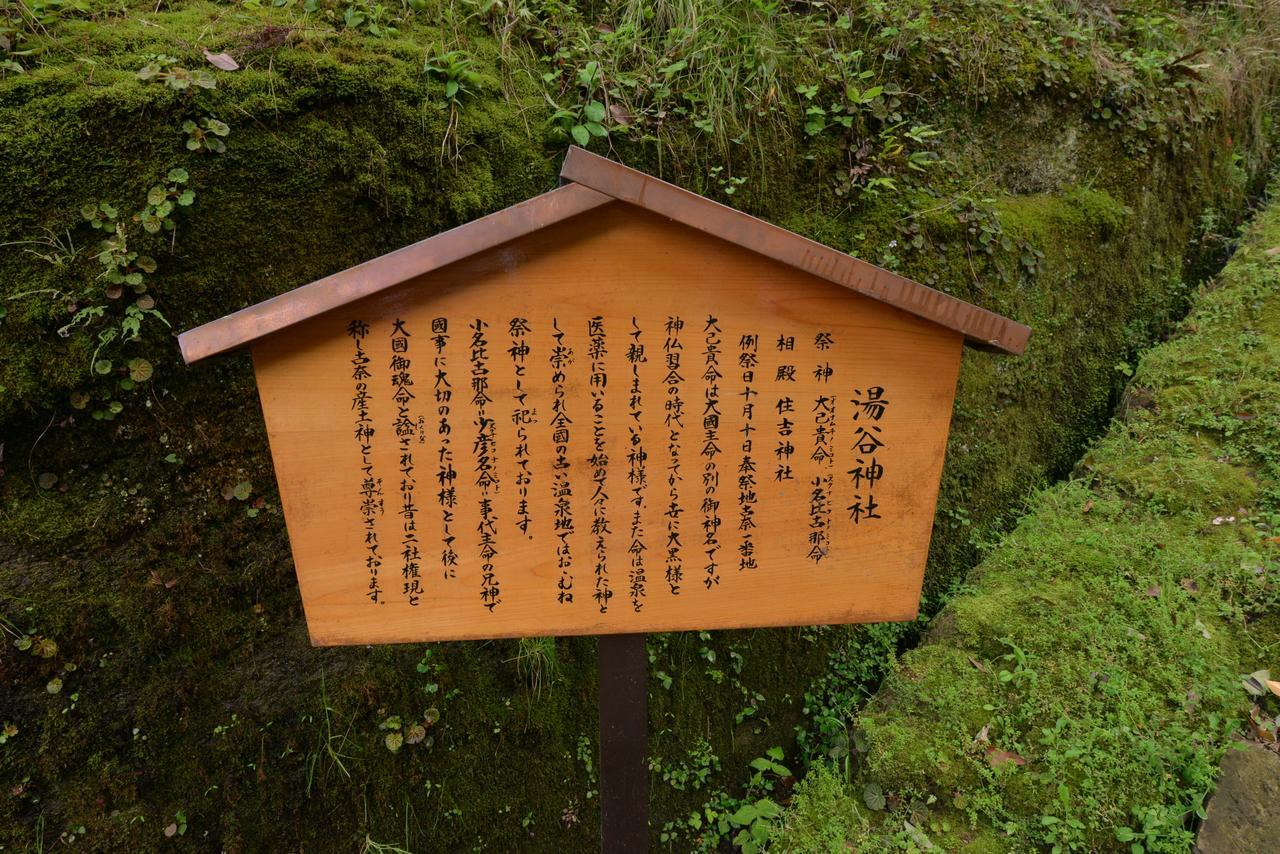 湯谷神社
祭神 大己貴命、小名比古那命
相殿 住吉神社
例祭日十月十日奉祭地古奈一番地
大己貴命は大國主命の別の御神名ですが
神仏習合の時代となってから世に大黒様と
して親しまれている神様です。また命は温泉を
医薬に用いることを始めて人に教えられた神と
して崇められ全國の古い温泉地ではおゝむね
祭神として祀られております。
小名比古那命＝少彦名命＝事代主命の兄神で
國事に大切のあった神様として後に
大國御魂命と諡されており昔は二社権現と
称し古奈の産土神として尊崇されております。